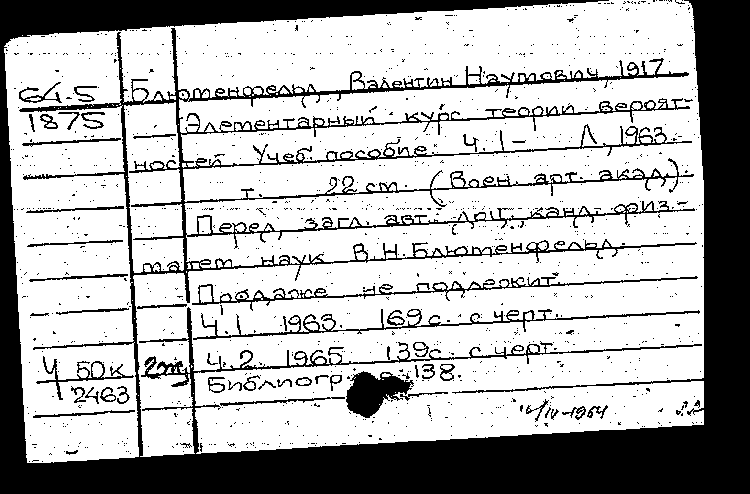 64.5 Блютенфельд, Валентин Наумович, 1917.
1875 Элементарный курс теории вероят-
ностей. Учеб. пособие. Ч. 1- Л., 1963.-
т. 22 см. (Воен. арт. акад.).
Перед. загл. авт.: доц., канд. физ.-
матем. наук В.Н. Блютенфельд.
Продаже не подлежит.
Ч.1. 1963. 169 с. с черт.
Ч 50к Ч.2. 1965. 139 с. с черт.
2463 Библиогр. с. 138.